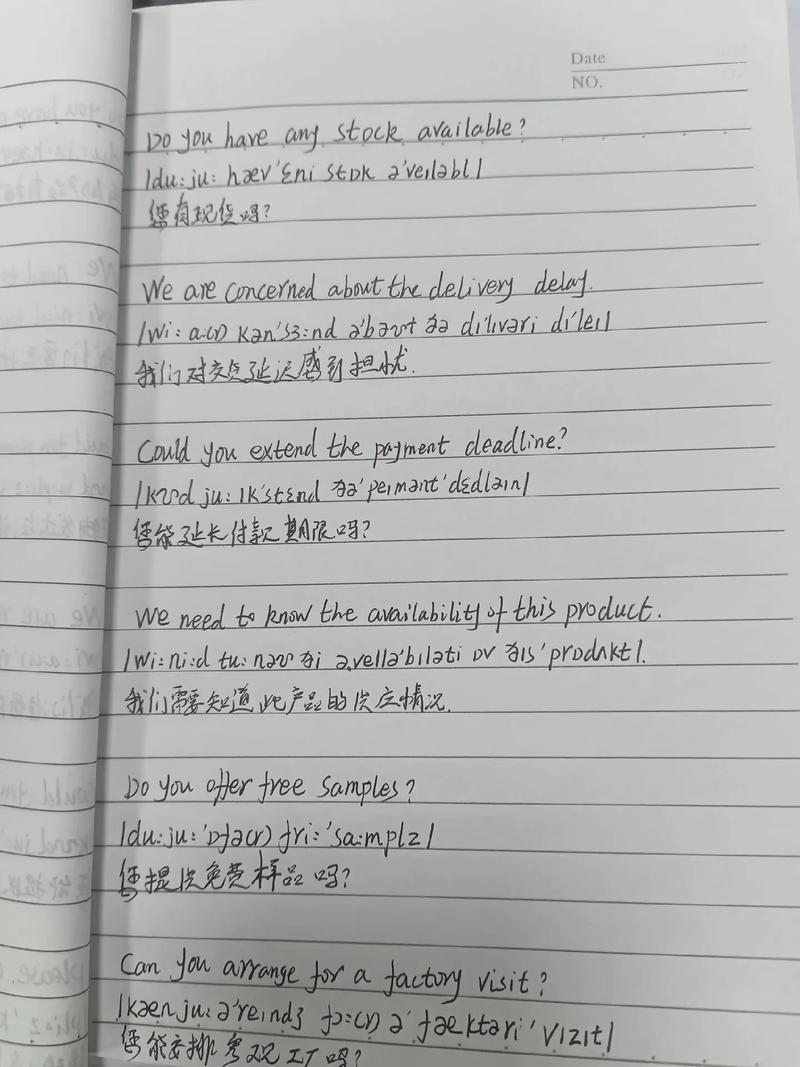 Date
NO.
Do you have any stock available?
/du: ju: hæv 'ɛni stɒk ə'veɪləbl/
您有现货吗?
We are concerned about the delivery delay.
/wi: ɑ:(r) kən'sɜ:nd ə'baʊt ðə dɪ'lɪvəri dɪ'leɪ/
我们对交货延迟感到担忧.
Could you extend the payment deadline?
/kʊd ju: ɪk'stɛnd ðə 'peɪmənt 'dɛdlaɪn/
您能延长付款期限吗?
We need to know the availability of this product.
/wi: ni:d tu: nəʊ ði ə,veɪlə'bɪləti ɒv ðɪs 'prɒdʌkt/.
我们需要知道此产品的供应情况.
Do you offer free samples?
/du: ju: 'ɒfə(r) fri: 'sɑ:mplz/
您提供免费样品吗?
Can you arrange for a factory visit?
/kæn ju: ə'reɪndʒ fɔ:(r) ə 'fæktəri 'vɪzɪt/
您能安排参观工厂吗?